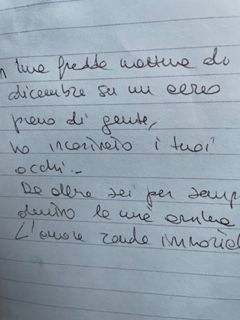 In una fredda mattina di
dicembre su un aereo
pieno di gente,
ho incrociato i tuoi
occhi..
Da allora sei per semp
dentro la mia anima
L'amore rende immortal